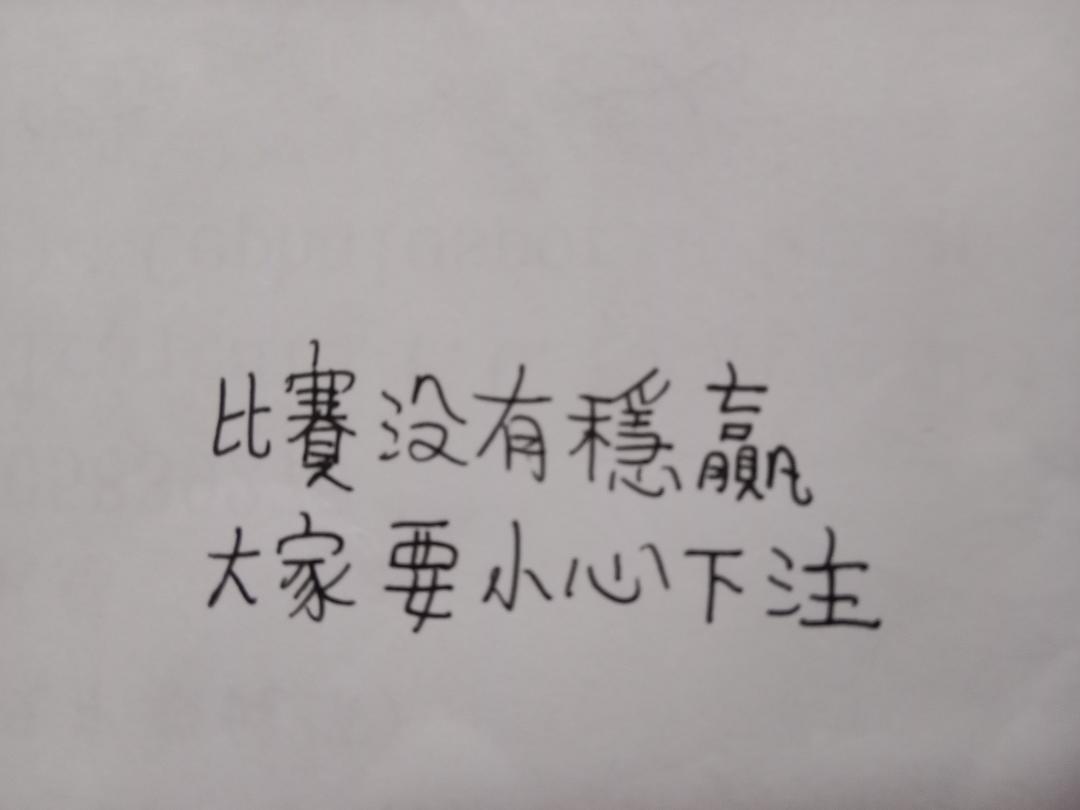 比賽没有穩贏
大家要小心下注